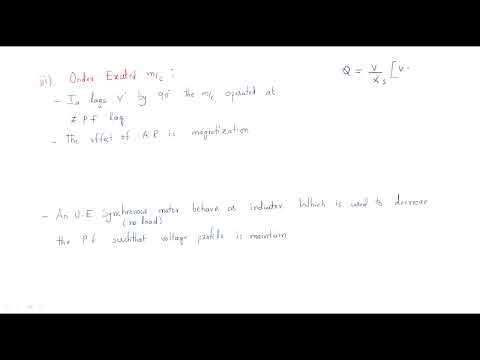 iii) Under Excited m/c :
Q = V/Xs [V-
- Ia lags V by 90° the m/c operated at
Z P f lag
- The effect of A.R is magnetization
- An U.E Synchronous motor behave as inductor which is used to decrease
(no load)
the P.f suchthat voltage profile is maintain